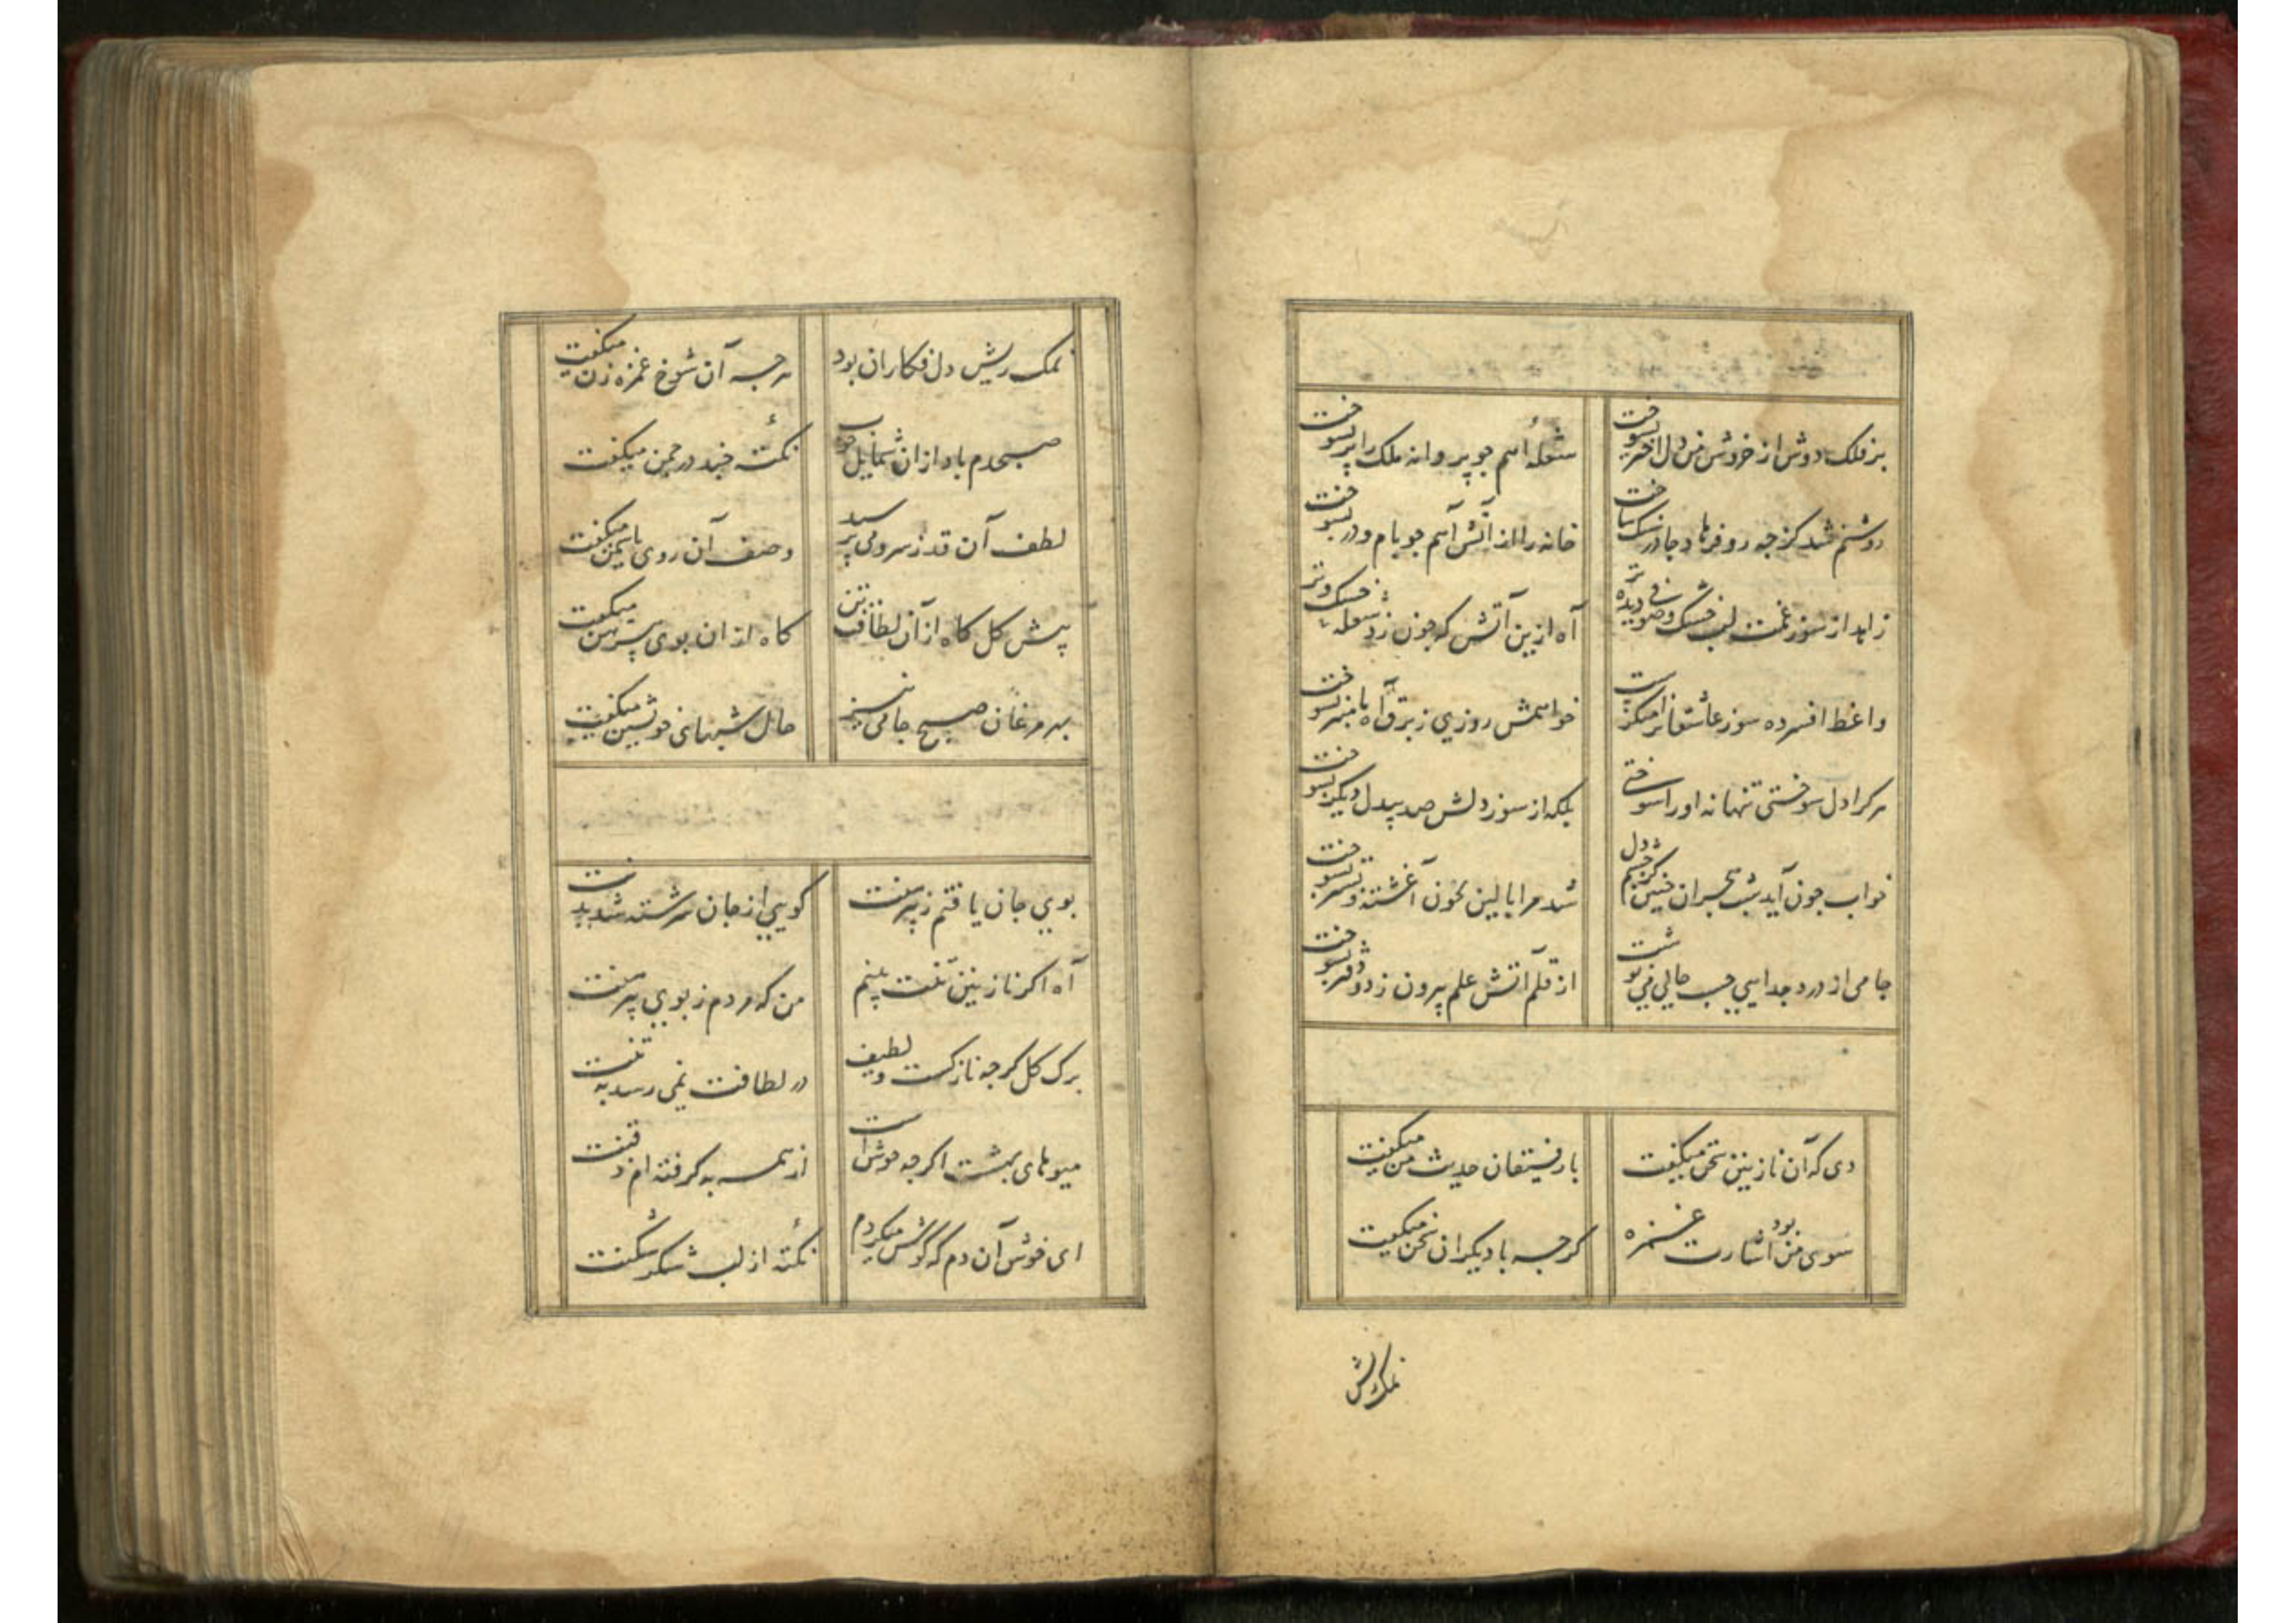 بر فلک دوش از خروش من دل اختر بسوخت
شعلهٔ آهم چو پروانه ملک را پر بسوخت
روشنم شد کز چه رو فرهاد جا در سنک ساخت
خانه را از آتش آهم چو بام و در بسوخت
زاهد از سوز غمت لب خشک و صوفی دیده تر
آه ازین آتش که چون زد شعله خشک و تر
واعظ افسرده سوز عاشقانرا منکرست
خواهمش روزی ز برق آه با منبر بسوخت
هر کرا دل سوختی تنها نه او را سوختی
بلکه از سوز دلش صد بیدل دیکر بسوخت
خواب چون آید شب هجران چنین کز چشم و دل
شد مرا بالین بخون آغشته و بستر بسوخت
جامی از درد جدایی حسب حالی می نوشت
از قلم آتش علم بیرون زد و دفتر بسوخت
دی که آن نازنین سخن میکفت
با رفیقان حدیث من میکفت
سوی من بود اشارت غمزه
کرچه با دیکران سخن میکفت
نمک ریش
نمک ریش دل فکاران بود
هرچه آن شوخ غمزه زن میکفت
صبحدم باد از ان شمایل خوب
نکتهٔ چند در چمن میکفت
لطف آن قد ز سرو می پرسید
وصف آن روی با سمن میکفت
پیش کل کاه از آن لطافت تن
کاه از ان بوی پیرهن میکفت
بهر مرغان صبح جامی نیز
حال شبهای خویشتن میکفت
بوی جان یافتم ز پیرهنت
کویی از جان سرشته شد بدنت
آه اکر نازنین تنت بینم
من که مردم ز بوی پیرهنت
برک کل کرچه نازکست و لطیف
در لطافت نمی رسد به تنت
میوهای بهشت اکرچه خوش است
از همه به کرفته ام ذقنت
ای خوش آن دم که کوش میکردم
نکتهٔ از لب شکر شکنت